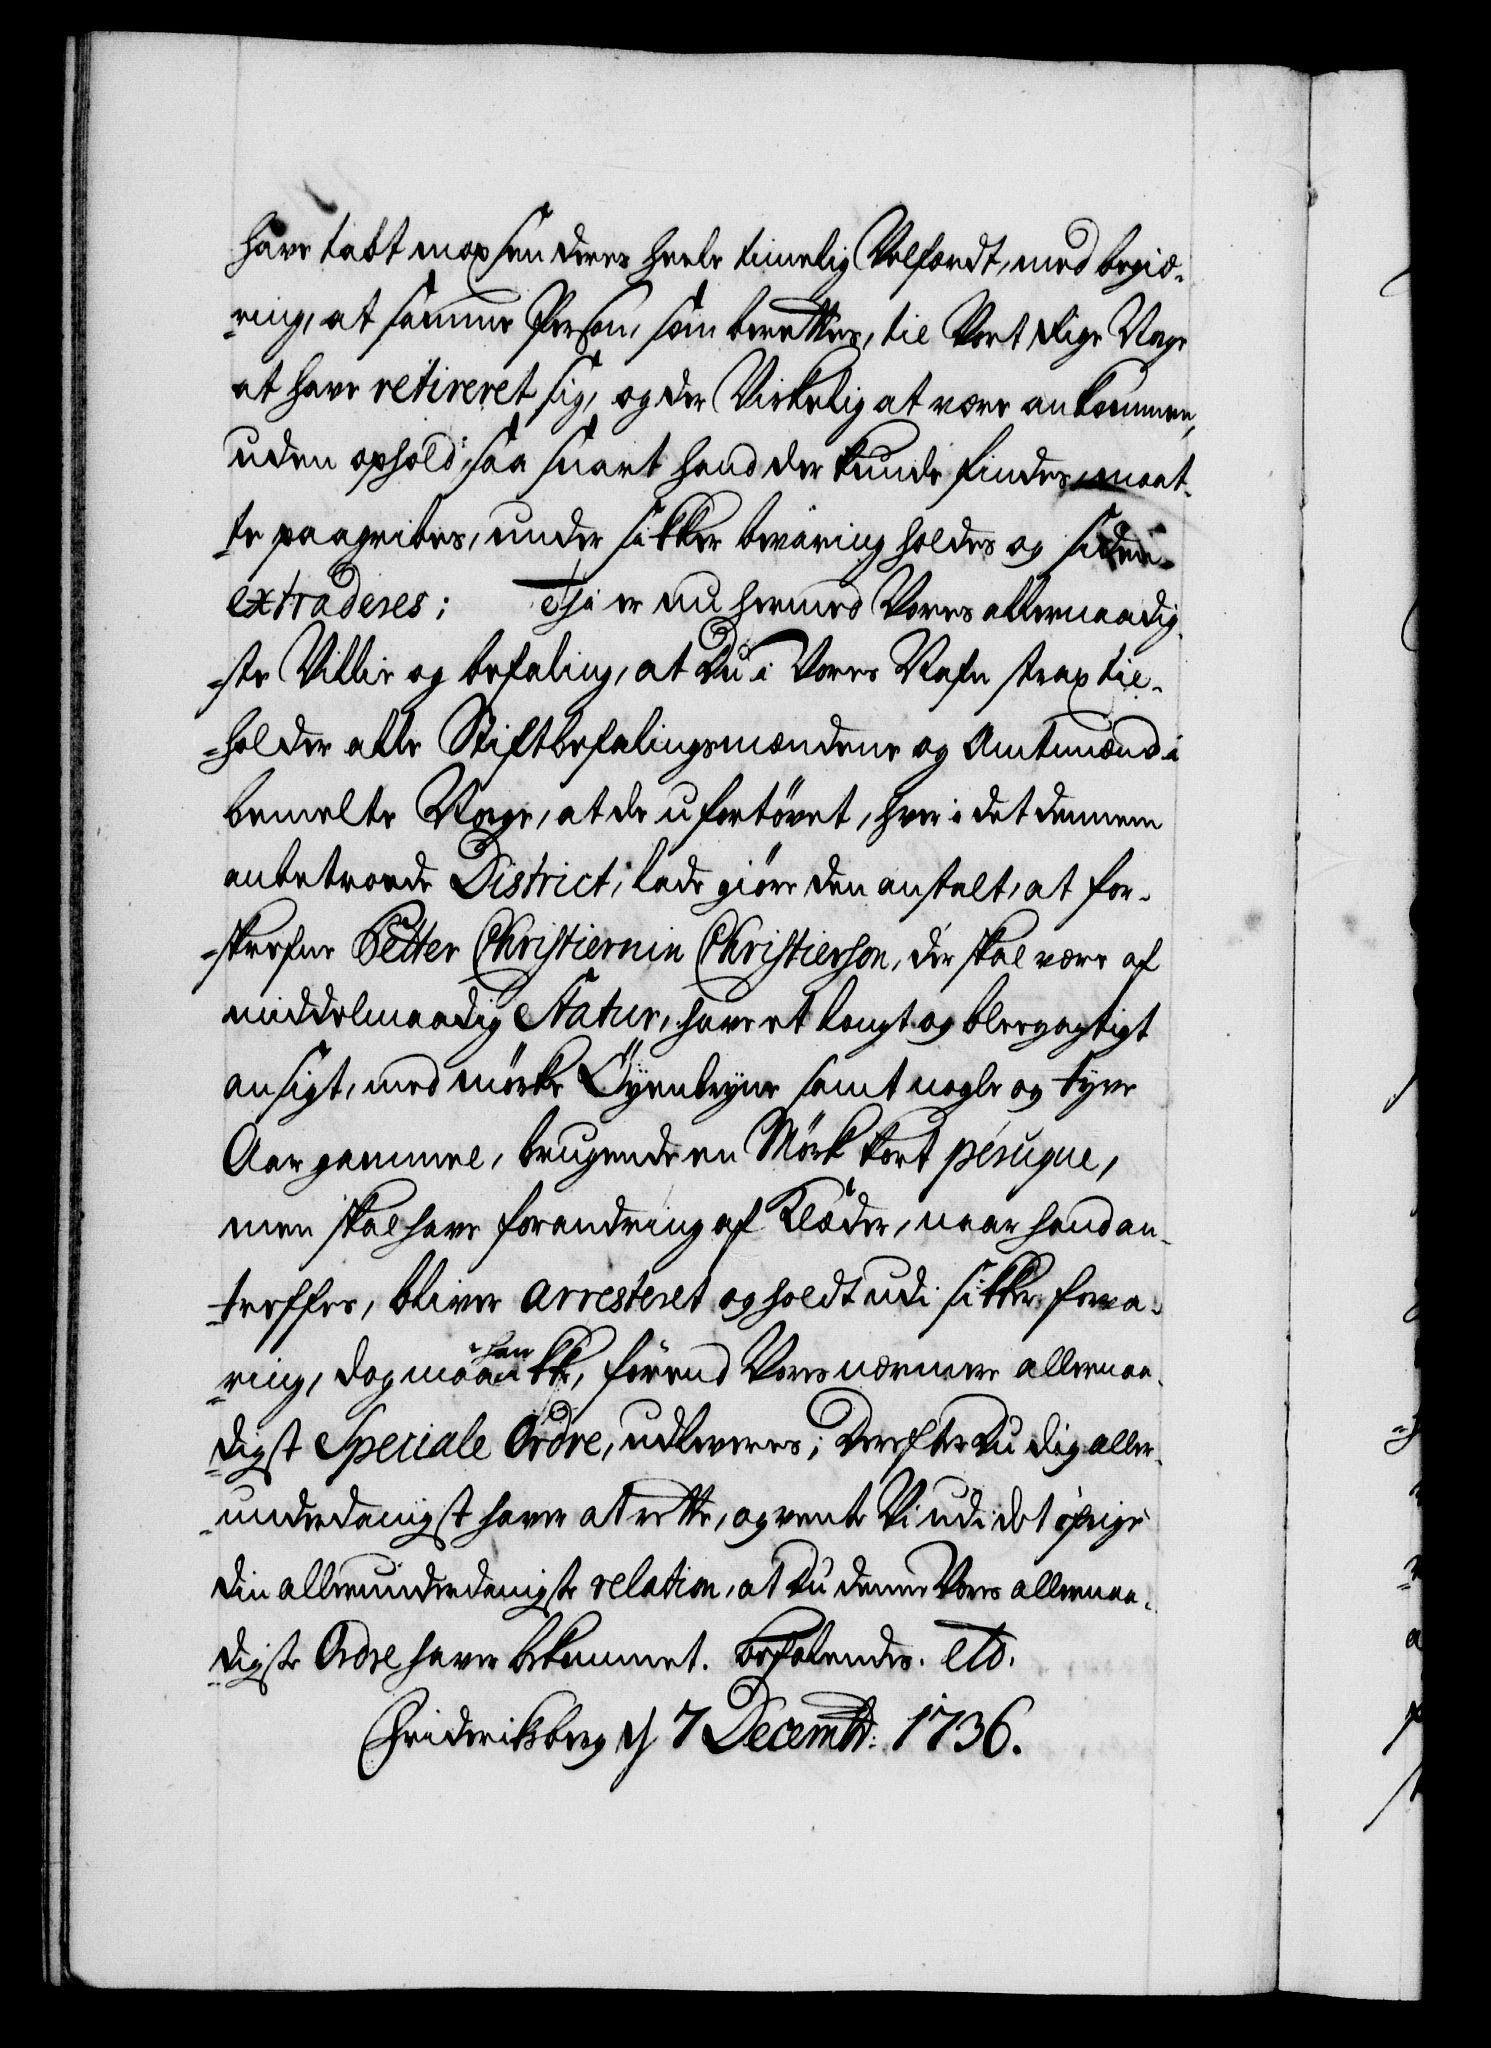 have tabt max sen deres heele timelig Velfærdt, med begiæ-
ring, at samme Person, som berettes, til Vort Rige Norge
at have retireret sig, og der Virkelig at være ankommen,
uden ophold, saa snart hand der kunde findes, maat-
te paagribes, under sikker bevaring holdes og siden
extraderes; Thi er nu hermed Vores allernaadig-
-ste Villie og befaling, at Du i Vores Nafn strax til-
-holder alle Stiftbefalingsmændene og Amtmænd i
bemelte Norge, at de ufortövet, hver i det dennem
anbetroede District, lade giöre den anstalt, at for-
-skrefne Petter Christiernin Christierson, der skal være af
middelmaadig Statur, have et langt og bleegagtigt
ansigt, med mörke Öyenbryne samt nogle og tyve
Aar gammel, brugende en Mörk kort péruque,
men skal have forandring af Klæder, naar hand an-
-treffes, bliver arresteret og holdt udi sikker forva-
-ring, dog maae han ikke, förend Vores nærmere allernaa-
digst Speciale Ordre, udleveres; Derefter Du dig aller-
-underdanigst haver at rette, og vente Vi udi det öfrige
din allerunderdanigste relation, at Du denne Vores allernaa-
digste Ordre haver bekommet. Befalendes. etc.
Frideriksberg d 7 Decembr: 1736.